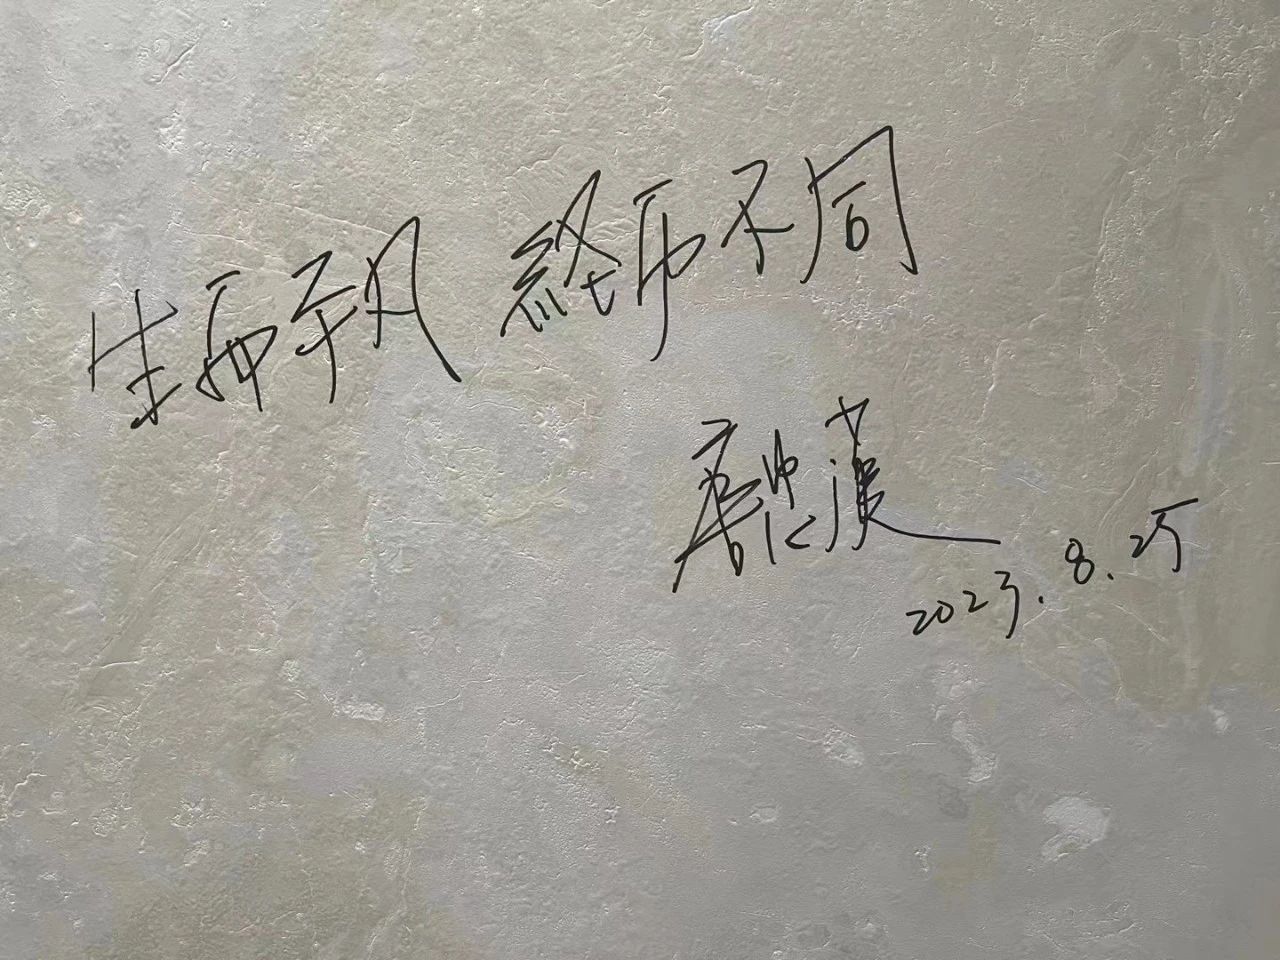 生而平凡 終而不同
唐忠漢
2023.8.25